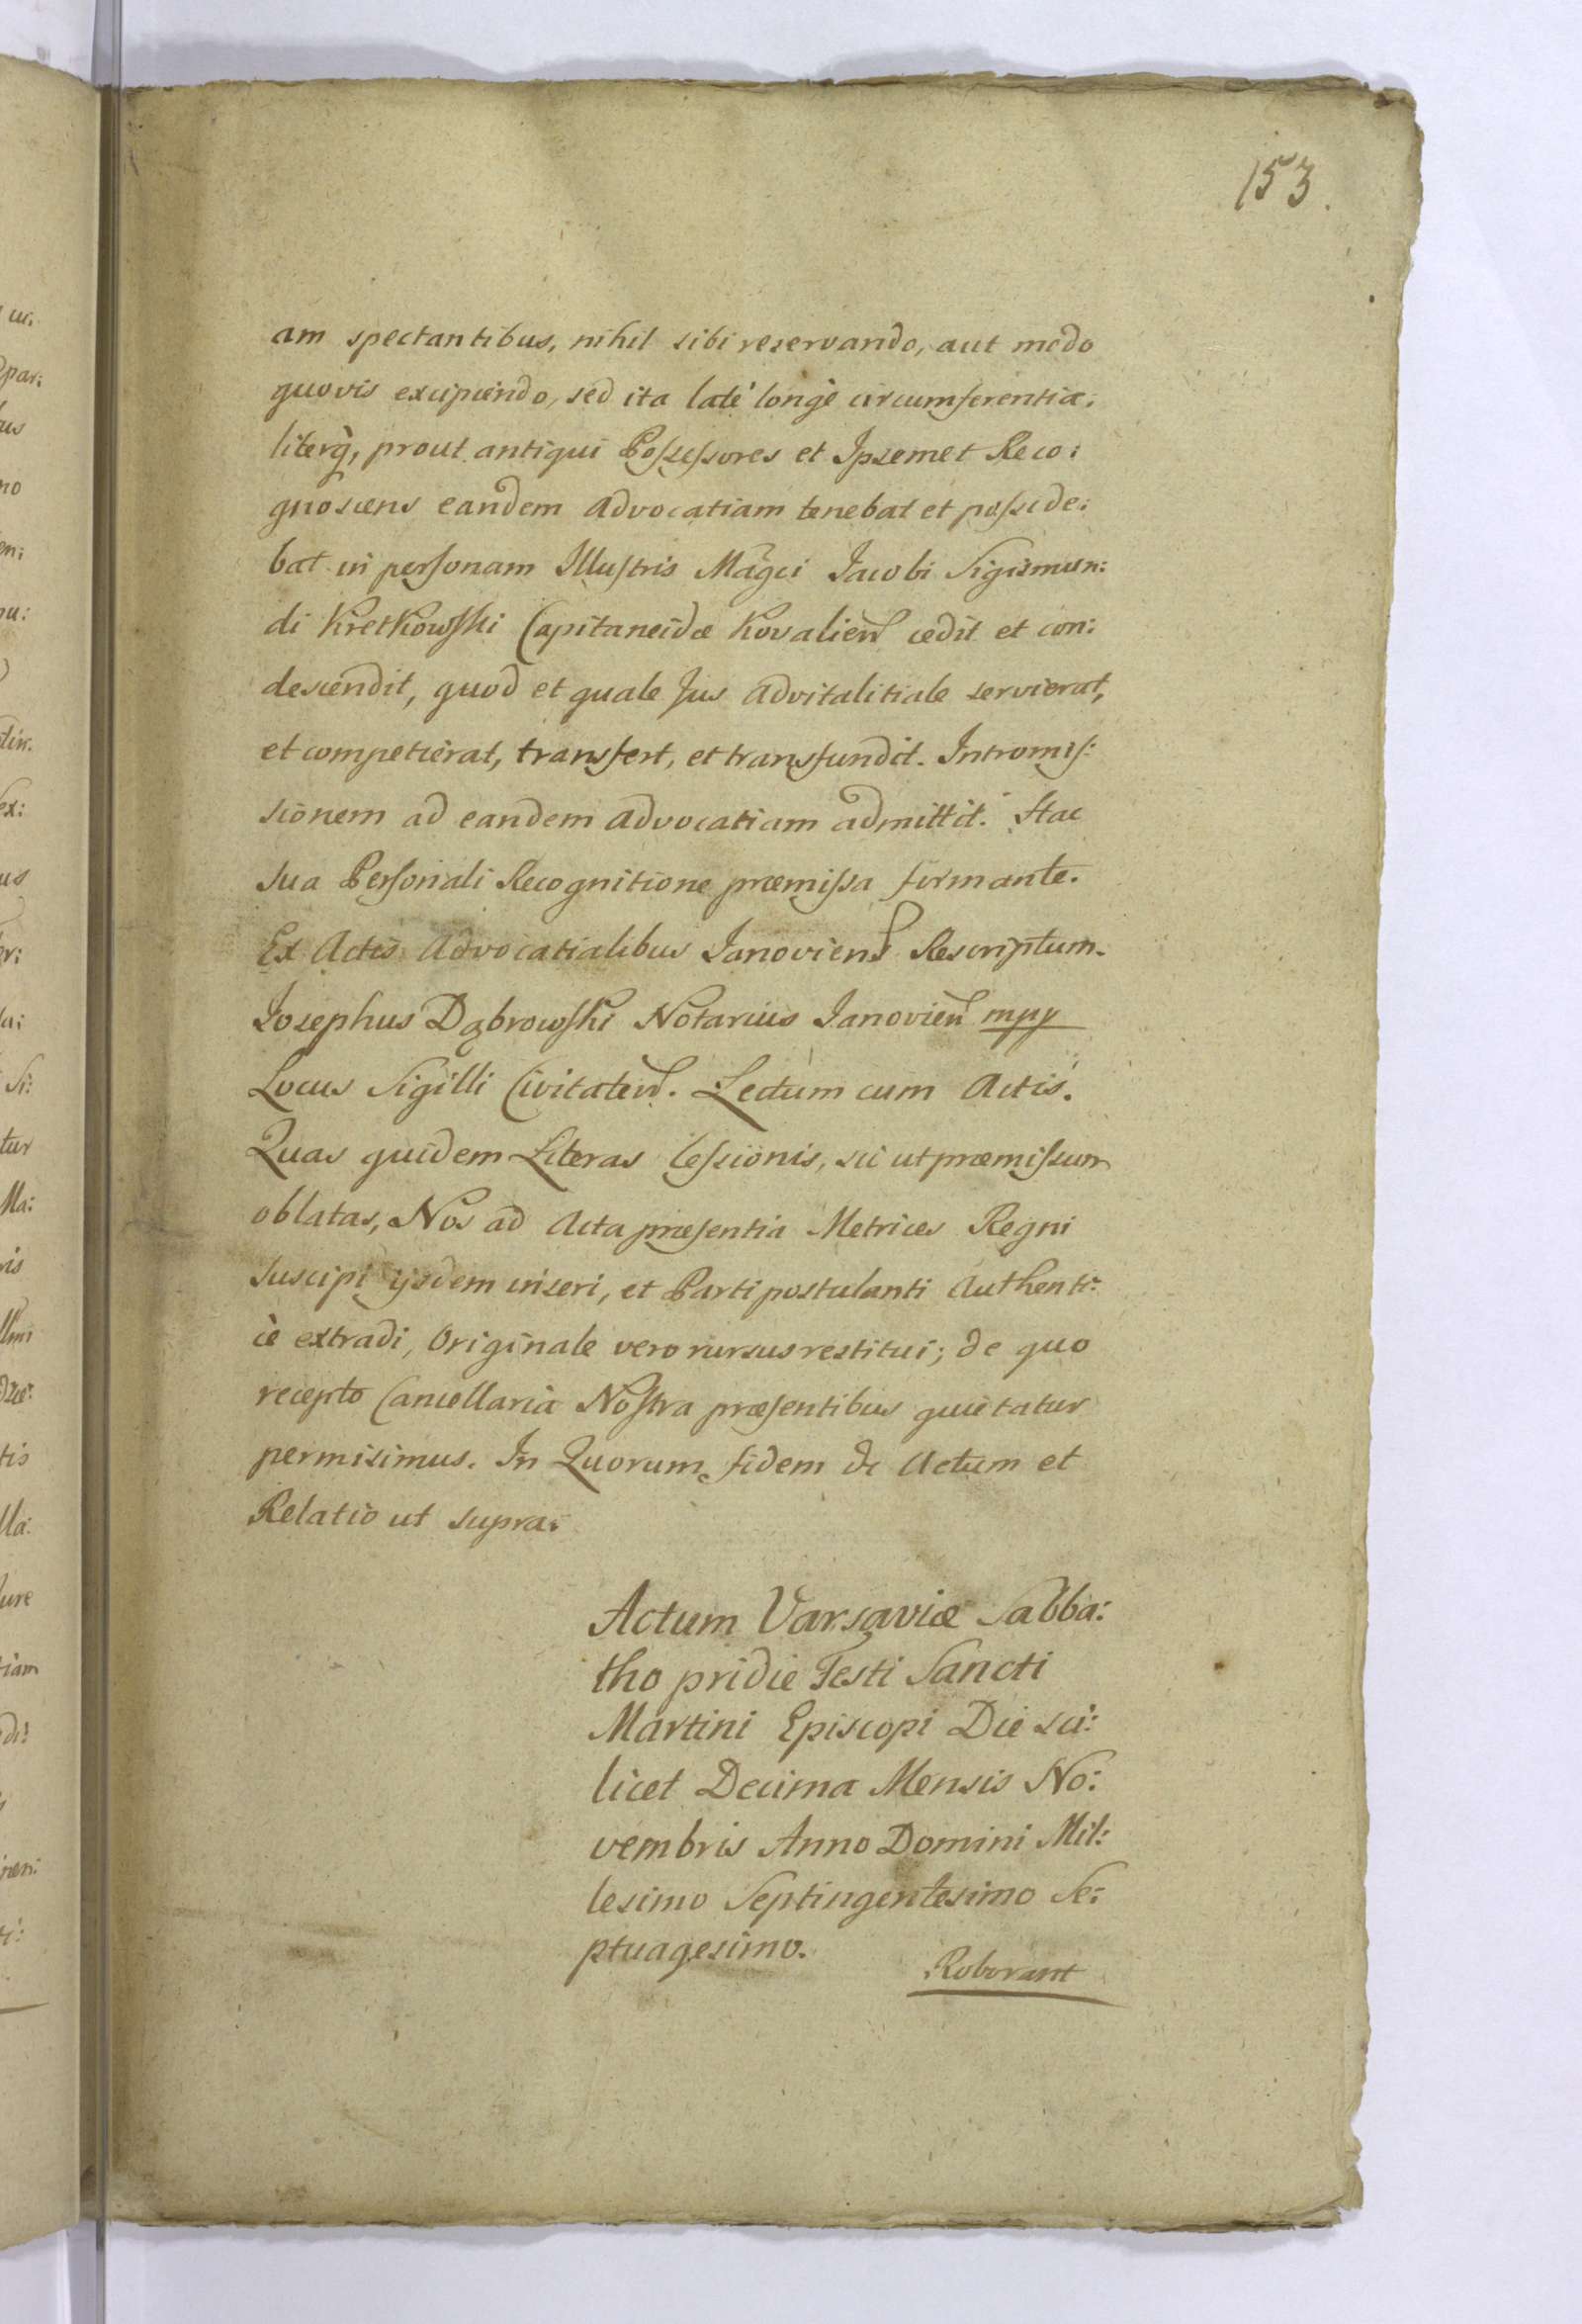 153.
am spectantibus, nihil sibi reservando, aut modo
quovis excipiendo, sed ita latè longè circumferentia:
literq̀, prout antiqui Possessores et Ipsemet Reco:
gnoscens eandem Advocatiam tenebat et posside:
bat in personam Illustris Magci Jacobi Sigismun:
di Kretkowski Capitaneidæ Kovalien cedit et con:
descendit, quod et quale Jus Advitalitiale servierat,
et competierat, transfert, et transfundit. Intromis:
sionem ad eandem Advocatiam admittit. Hac
sua Personali Recognitione præmissa firmante.
Ex Actis Advocatialibus Janoviens Rescriptum.
Josephus Dąbrowski Notarius Janovien mpp
Locus Sigilli Civitaten. Lectum cum Actis.
Quas quidem Literas Cessionis, sic ut præmissum
oblatas, Nos ad Acta præsentia Metrices Regni
suscipi ijsdem inseri, et Parti postulanti Authenti:
ce extradi, Originale vero rursus restitui; de quo
recepto Cancellaria Nostra præsentibus quietatur
permisimus. In Quorum fidem &c Actum et
Relatio ut supra.
Actum Varsaviæ Sabba:
tho pridie Festi Sancti
Martini Episcopi Die sci:
licet Decima Mensis No:
vembris Anno Domini Mil:
lesimo Septingentesimo Se:
ptuagesimo.
Roborant